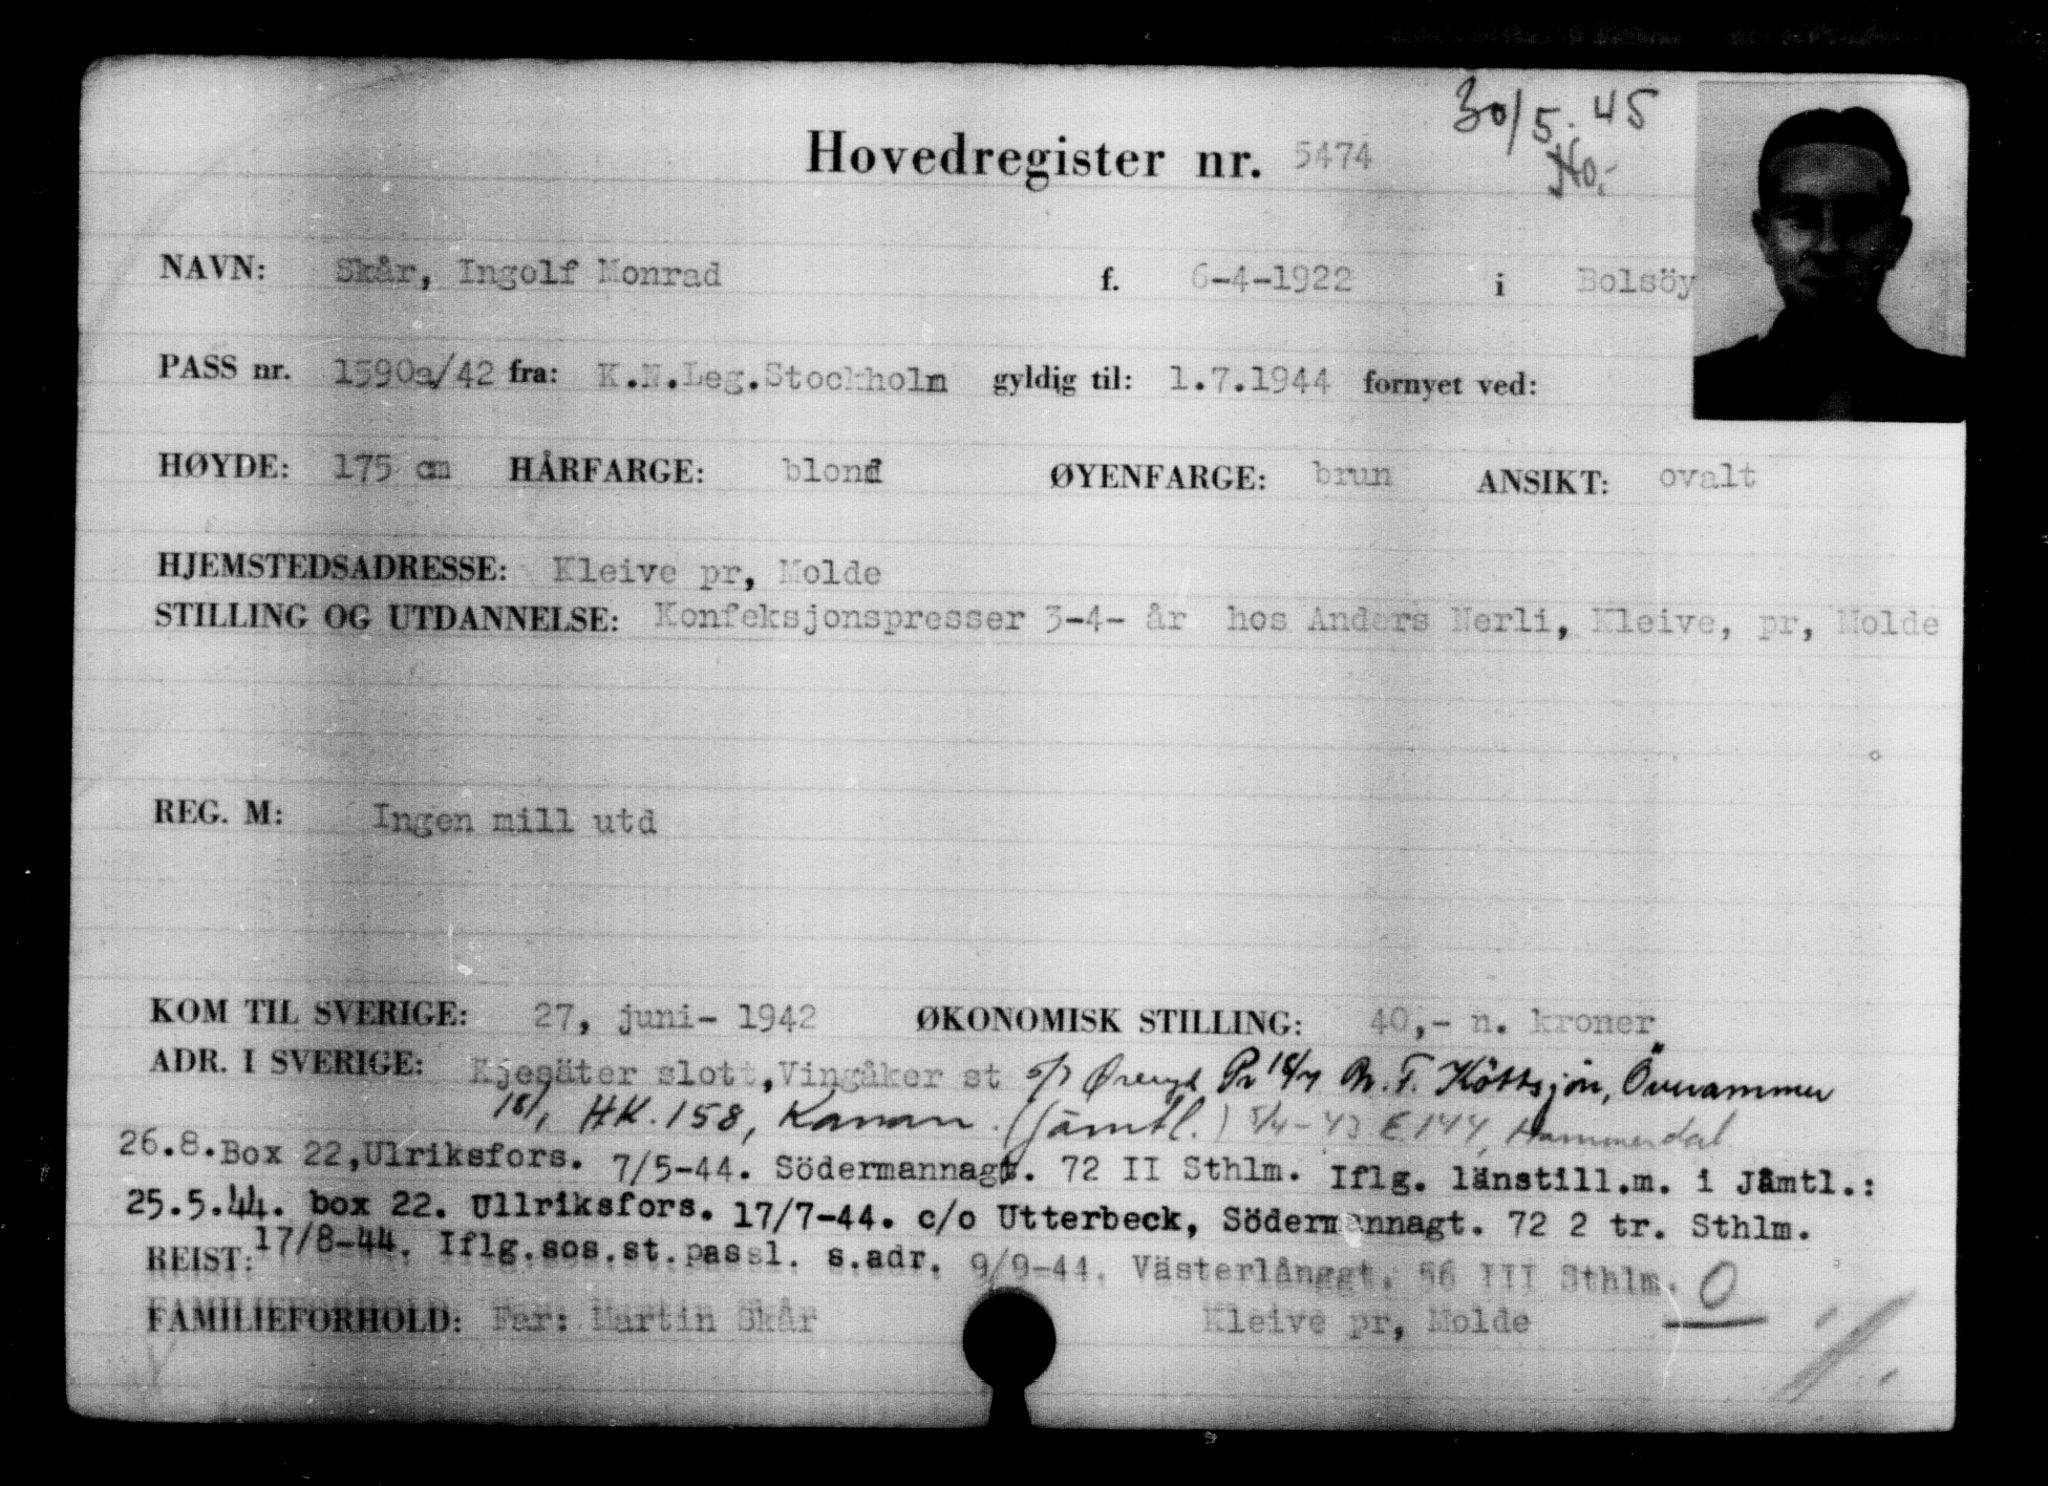 30/5. 45
Hovedregister nr. 5474
No.-
NAVN: Skår, Ingolf Monrad f. 6-4-1922 i Bolsöy
PASS nr. 1590a/42 fra: K.N.Leg.Stockholm gyldig til: 1.7.1944 fornyet ved:
HØYDE: 175 cm HÅRFARGE: blond ØYENFARGE: brun ANSIKT: ovalt
HJEMSTEDSADRESSE: Kleive pr, Molde
STILLING OG UTDANNELSE: Konfeksjonspresser 3-4- år hos Anders Nerli, Kleive, pr, Molde
REG. M: Ingen mill utd
KOM TIL SVERIGE: 27, juni- 1942 ØKONOMISK STILLING: 40,- n. kroner
ADR. I SVERIGE: Kjesäter slott,Vingåker st Köttsjön,
HK. 158, (Jämtl.) E 144, Hammerdal
26.8. Box 22,Ulriksfors. 7/5-44. Södermannagt. 72 II Sthlm. Iflg. länstill.m. i Jämtl.:
25.5.44. box 22. Ullriksfors. 17/7-44. c/o Utterbeck, Södermannagt. 72 2 tr. Sthlm.
REIST: 17/8-44. Iflg.sos.st.passl. s.adr. 9/9-44. Västerlånggt. 56 III Sthlm. 0
FAMILIEFORHOLD: Far: Martin Skår Kleive pr, Molde